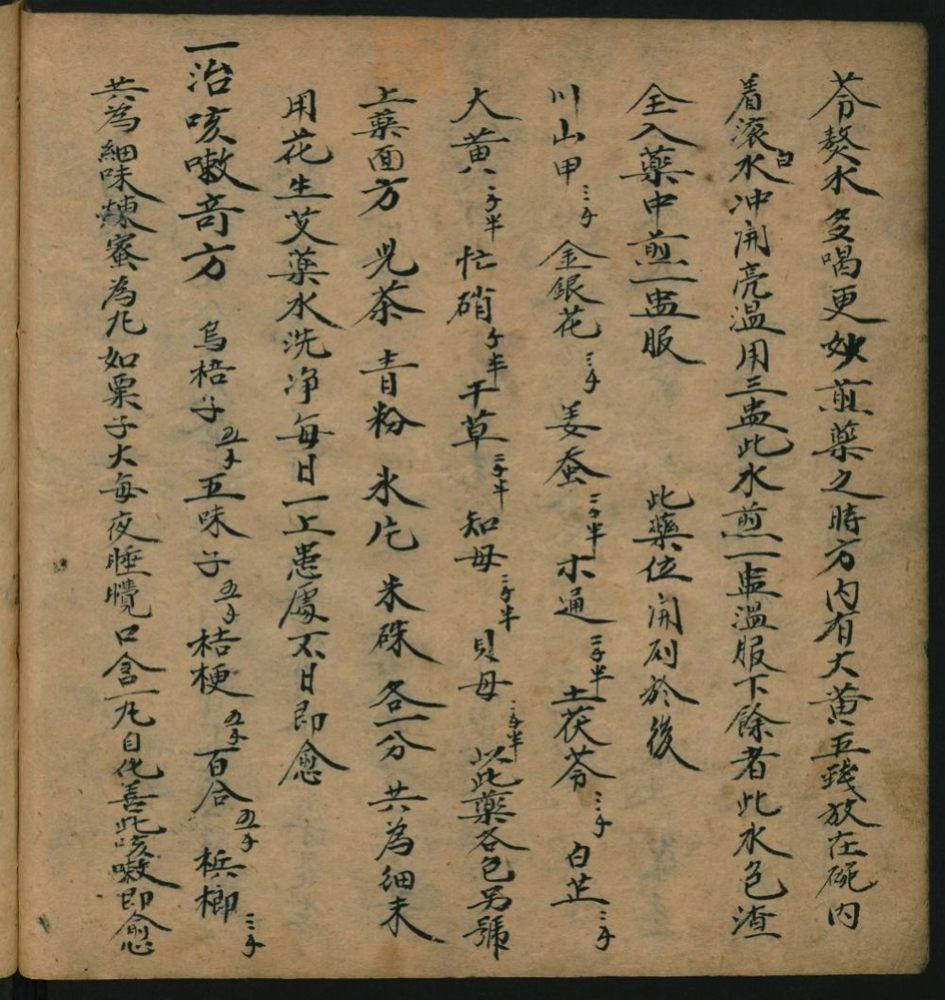 苓熬水多喝更妙煎藥之時方內有大黃五錢放在碗內
着滾白水冲開亮溫用三盅此水煎一盅溫服下餘者此水色渣
全入藥中煎一盅服 此藥位開列於後
川山甲三子 金銀花三子 姜蚕二子半 木通二子半 土茯苓三子 白芷三子
大黃二子半 忙硝子半 干草二子半 知母二子半 貝母二子半 以此藥各包另號
上藥面方 児茶 青粉 氷片 米硃 各一分 共為細末
用花生艾藥水洗净每日一上患處不日即愈
一治咳嗽竒方 烏梏子五子 五味子五子 桔梗五子 百合五子 梹榔三子
共為細味煉蜜為九如栗子大每夜睡覺口含一九自化善此咳嗽即愈